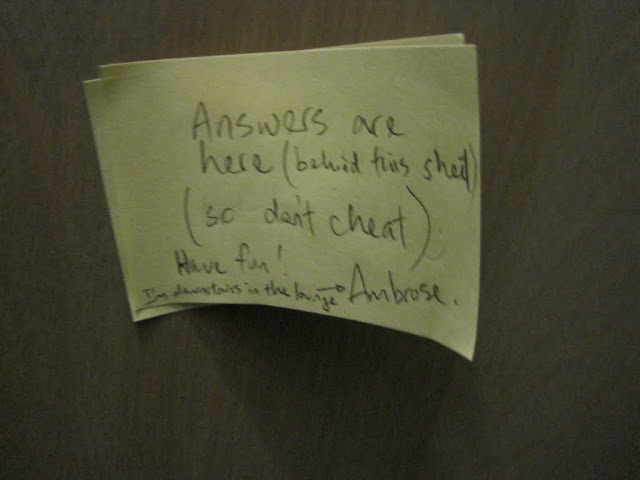 Answers are
here (behind this sheet)
(so don't cheat)
Have fun!
I'm downstairs in the lounge → Ambrose.